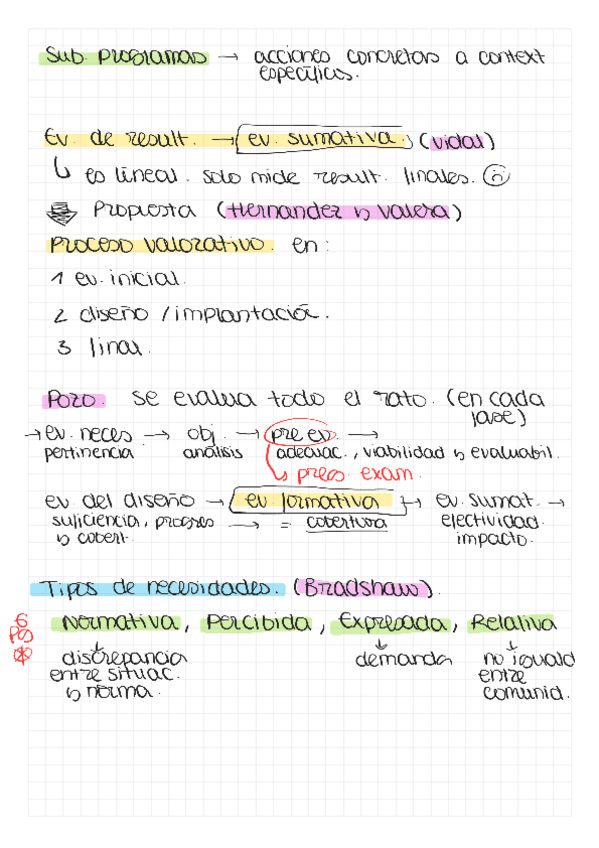 Sub. programas → acciones concretas a context
específicos.
Ev. de result. → ev. sumativa. (Vidal)
↳ es lineal. solo mide result. finales. ☹
Propuesta (Hernandez y Valera)
Proceso valorativo. en:
1 ev. inicial.
2 diseño / implantación.
3 final.
Pozo. se evalua todo el rato. (en cada
fase)
→ ev. neces → obj. → pre ev. →
pertinencia análisis adecuac., viabilidad y evaluabil.
↳ preg exam.
ev del diseño → ev formativa → ev. sumat. →
suficiencia, progres → = cobertura efectividad.
y cobert. impacto.
Tipos de necesidades. (Bradshaw).
Normativa, Percibida, Expresada, Relativa
discrepancia demanda no iguald
entre situac. entre
y norma. comunid.